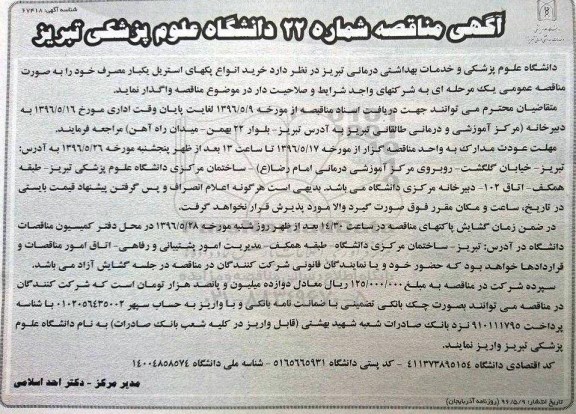 شناسه آگهی: ۶۷۴۱۸
آگهی مناقصه شماره ۲۲ دانشگاه علوم پزشکی تبریز
دانشگاه علوم پزشکی و خدمات بهداشتی درمانی تبریز در نظر دارد خرید انواع پکهای استریل یکبار مصرف خود را به صورت
مناقصه عمومی یک مرحله ای به شرکتهای واجد شرایط و صلاحیت دار در موضوع مناقصه واگذار نماید.
متقاضیان محترم می توانند جهت دریافت اسناد مناقصه از مورخه ۱۳۹۶/۵/۹ لغایت پایان وقت اداری مورخ ۱۳۹۶/۵/۱۶ به
دبیرخانه (مرکز آموزشی و درمانی طالقانی تبریز به آدرس تبریز- بلوار ۲۲ بهمن-میدان راه آهن) مراجعه فرمایند.
مهلت عودت مدارک به واحد مناقصه گزار از مورخه ۱۳۹۶/۵/۱۷ تا ساعت ۱۳ بعد از ظهر پنجشنبه مورخه ۱۳۹۶/۵/۲۶ به آدرس:
تبریز- خیابان گلگشت- روبروی مرکز آموزشی درمانی امام رضا(ع) - ساختمان مرکزی دانشگاه علوم پزشکی تبریز- طبقه
همکف- اتاق ۱۰۲- دبیرخانه مرکزی دانشگاه می باشد. بدیهی است هرگونه اعلام انصراف و پس گرفتن پیشنهاد قیمت بایستی
در تاریخ، ساعت و مکان مقرر فوق صورت گیرد والا مورد پذیرش قرار نخواهد گرفت.
در ضمن زمان گشایش پاکتهای مناقصه در ساعت ۱۴/۳۰ بعد از ظهر روز شنبه مورخه ۱۳۹۶/۵/۲۸ در محل دفتر کمیسیون مناقصات
دانشگاه در آدرس: تبریز- ساختمان مرکزی دانشگاه- طبقه همکف- مدیریت امور پشتیبانی و رفاهی- اتاق امور مناقصات و
قراردادها خواهد بود که حضور خود و یا نمایندگان قانونی شرکت کنندگان در مناقصه در جلسه گشایش آزاد می باشد.
سپرده شرکت در مناقصه به مبلغ ۱۲۵/۰۰۰/۰۰۰ ریال معادل دوازده میلیون و پانصد هزار تومان است که شرکت کنندگان
در مناقصه می توانند بصورت چک بانکی تضمینی یا ضمانت نامه بانکی و یا واریز به حساب سپهر ۰۱۰۳۰۵۶۴۳۵۰۰۲ با شناسه
پرداخت ۹۱۰۱۱۱۷۹۵ نزد بانک صادرات شعبه شهید بهشتی (قابل واریز در کلیه شعب بانک صادرات) به نام دانشگاه علوم
پزشکی تبریز واریز نمایند.
کد اقتصادی دانشگاه ۴۱۱۳۷۳۸۹۵۱۵۴ - کد پستی دانشگاه ۵۱۶۵۶۶۵۹۳۱ - شناسه ملی دانشگاه ۱۴۰۰۴۸۵۸۵۷۴
مدیر مرکز - دکتر احد اسلامی
تاریخ انتشار: ۹۶/۵/۹ (روزنامه آذربایجان)